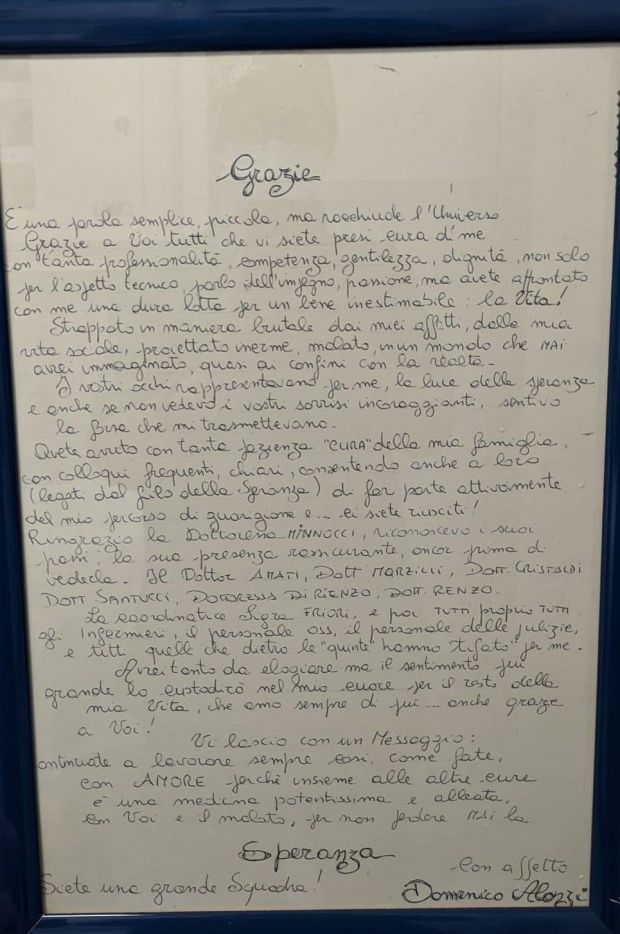 Grazie
È una parola semplice, piccola, ma racchiude l'Universo
Grazie a Voi tutti che vi siete presi cura di me
con tanta professionalità, competenza, gentilezza, dignità, non solo
per l'aspetto tecnico, parlo dell'impegno, passione, ma avete affrontato
con me una dura lotta per un bene inestimabile: la Vita!
Strappato in maniera brutale dai miei affetti, dalla mia
vita sociale, proiettato inerme, malato, in un mondo che MAI
avrei immaginato, quasi ai confini con la realtà.
I vostri occhi rappresentavano per me, la luce della speranza
e anche se non vedevo i vostri sorrisi incoraggianti, sentivo
la forza che mi trasmettevano.
Avete avuto con tanta pazienza "CURA" della mia famiglia,
con colloqui frequenti, chiari, consentendo anche a loro
(legati dal filo della Speranza) di far parte attivamente
del mio percorso di guarigione e... ci siete riusciti!
Ringrazio la Dottoressa MINNOCCI, riconoscevo i suoi
passi, la sua presenza rassicurante, ancor prima di
vederla. Il Dottor AMATI, Dott MARZILLI, DOTT. CRISTALDI
DOTT SANTUCCI, DOTTORESSA DI RIENZO, DOTT. RENZO.
La coordinatrice Sigra FRIORI, e poi TUTTI proprio TUTTI
gli Infermieri, il personale OSS, il personale delle pulizie,
e tutti quelli che dietro le "quinte" hanno "tifato" per me.
Avrei tanto da elogiare ma il sentimento più
grande lo custodirò nel mio cuore per il resto della
mia Vita, che amo sempre di più... anche grazie
a Voi!
Vi lascio con un Messaggio:
ontinuate a lavorare sempre così, come fate,
con AMORE perchè insieme alle altre cure
è una medicina potentissima e alleata,
con Voi e il malato, per non perdere MAI la
Speranza
Con affetto
Siete una grande Squadra!
Domenico Alozzi